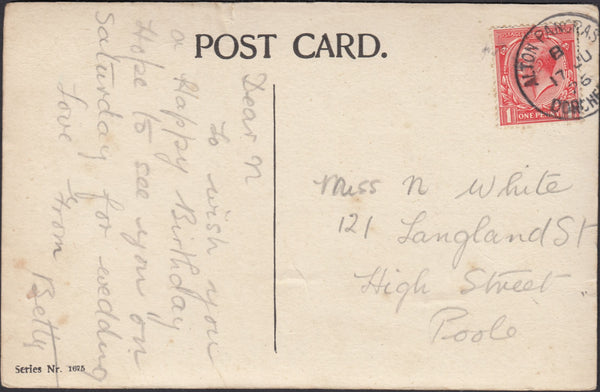 POST CARD.
Dear N
to wish you
a Happy Birthday
Hope to see you on
Saturday for wedding
Love from Betty
Miss N White
121 Langland St
High Street
Poole
ALTON PANCRAS
17 JU
DORCHE
ONE PEN
1
Series Nr. 1675